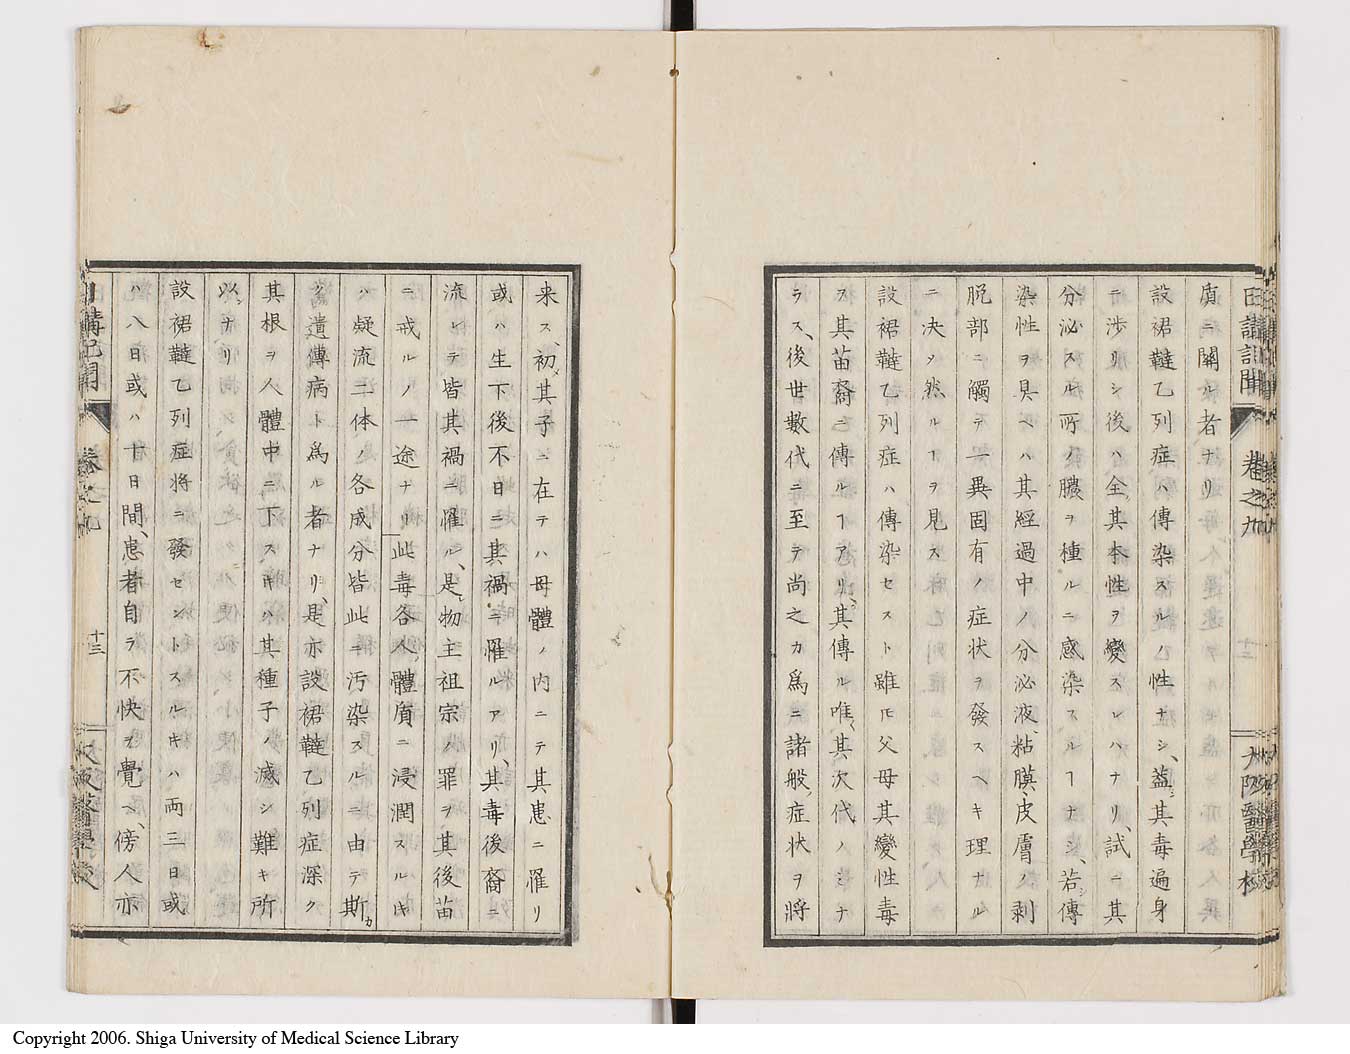 日講記聞 卷之九 十三 大阪醫學校
質ニ關ル者ナリ
設裙韃乙列症ハ傳染スルノ性ナシ、蓋其毒遍身
ニ渉リシ後ハ全其本性ヲ變スレハナリ、試ニ其
分泌スル所ノ膿ヲ種ルニ感染スルヿナシ、若シ傳
染性ヲ具ヘハ其經過中ノ分泌液、粘膜、皮膚ノ剥
脱部ニ觸テ一異固有ノ症状ヲ發スヘキ理ナル
ニ决ソ然ルヿヲ見ス
設裙韃乙列症ハ傳染セスト雖𪜈父母其變性毒
ヲ其苗裔ニ傳ルヿアリ、其傳ル唯其次代ノミナ
ラス、後世數代ニ至テ尚之カ爲ニ諸般症状ヲ將
来ス、初其子ニ在テハ母體ノ内ニテ其患ニ罹リ
或ハ生下後不日ニ其禍ニ罹ルアリ、其毒後裔ニ
流レテ皆其禍ニ罹ル、是物主祖宗ノ罪ヲ其後苗
ニ戒ルノ一途ナリ此毒各人體質ニ浸潤スルキ
ハ凝流二体ノ各成分皆此ニ汚染スルニ由テ斯カ
ク遺傳病ト爲ル者ナリ、是亦設裙韃乙列症深ク
其根ヲ人體中ニ下スキハ其種子ノ滅シ難キ所
以ナリ
設裙韃乙列症将ニ發セントスルキハ両三日或
ハ八日或ハ廿日間、患者自ラ不快ヲ覺ヘ、傍人亦
日講記聞 卷之九 十三 大阪醫學校
Copyright 2006. Shiga University of Medical Science Library